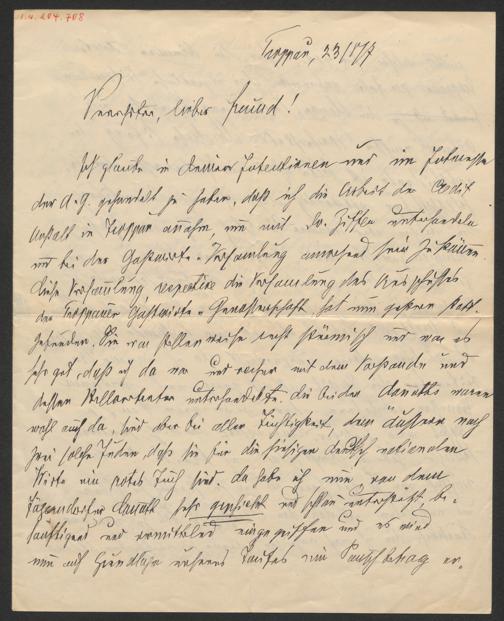 I.N. 204.708
Troppau, 23/8/7
Verehrter, lieber Freund!
Ich glaube in Deinen Intentionen und im Interesse
der A.G. gehandelt zu haben, daß ich die Arbeit der Credit
Anstalt in Troppau annahm, um mit Dr. unterhandeln
und bei der Gastwirte-Versammlung anwesend sein zu können
diese Versammlung respective die Versammlung des Ausschußes
der Troppauer Gastwirte-Genossenschaft, hat nun gestern statt-
gefunden. Sie war stellenweise recht stürmisch und war es
sehr gut, daß ich da war und vorher mit dem Vorstande und
dessen Stellvertreter unterhandelte. Die beiden waren
wohl auch da, sind aber bei aller Tüchtigkeit, dem Äussern nach
zwei solche Juden, daß sie für die hiesigen deutsch nationalen
Wirte ein rotes Tuch sind. Da habe ich nun, von dem
Jägerndorfer sehr geschickt und schlau unterstützt be-
sänftigend und vermittelnd eingegriffen und es wird
nun auf Grundlage unseres Tarifes ein Pauschbetrag er-